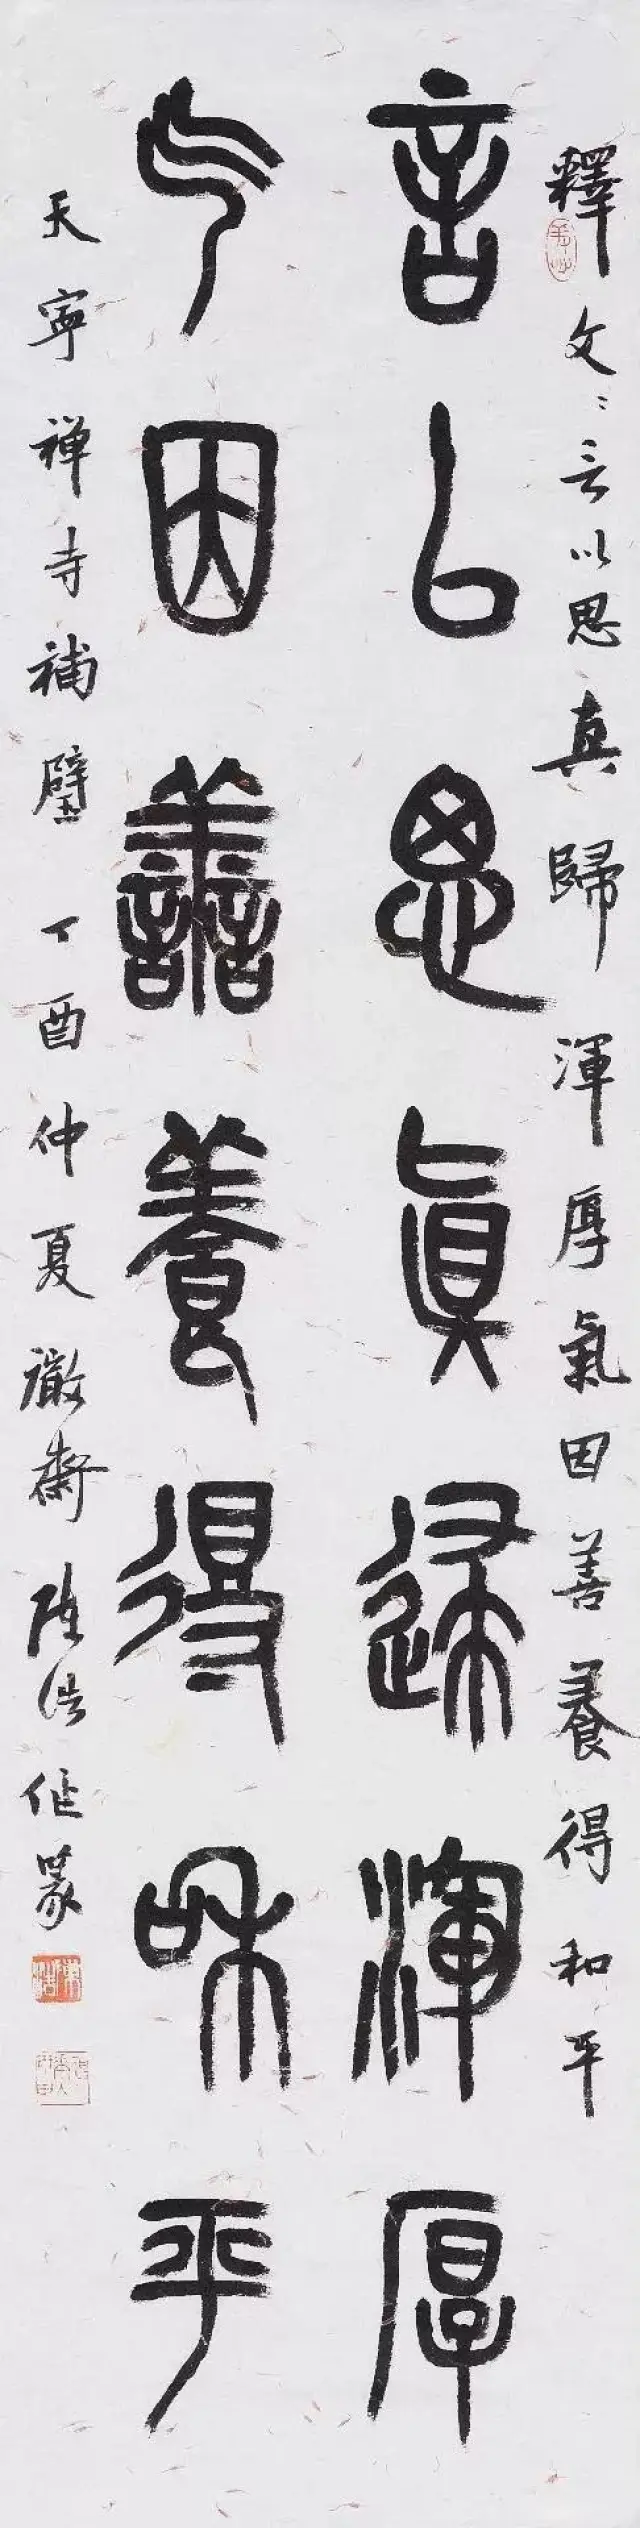 釋文：言以思真歸渾厚氣因善養得和平
言以思真歸渾厚
气因善養得和平
天寧禅寺補壁 丁酉仲夏 浩作篆